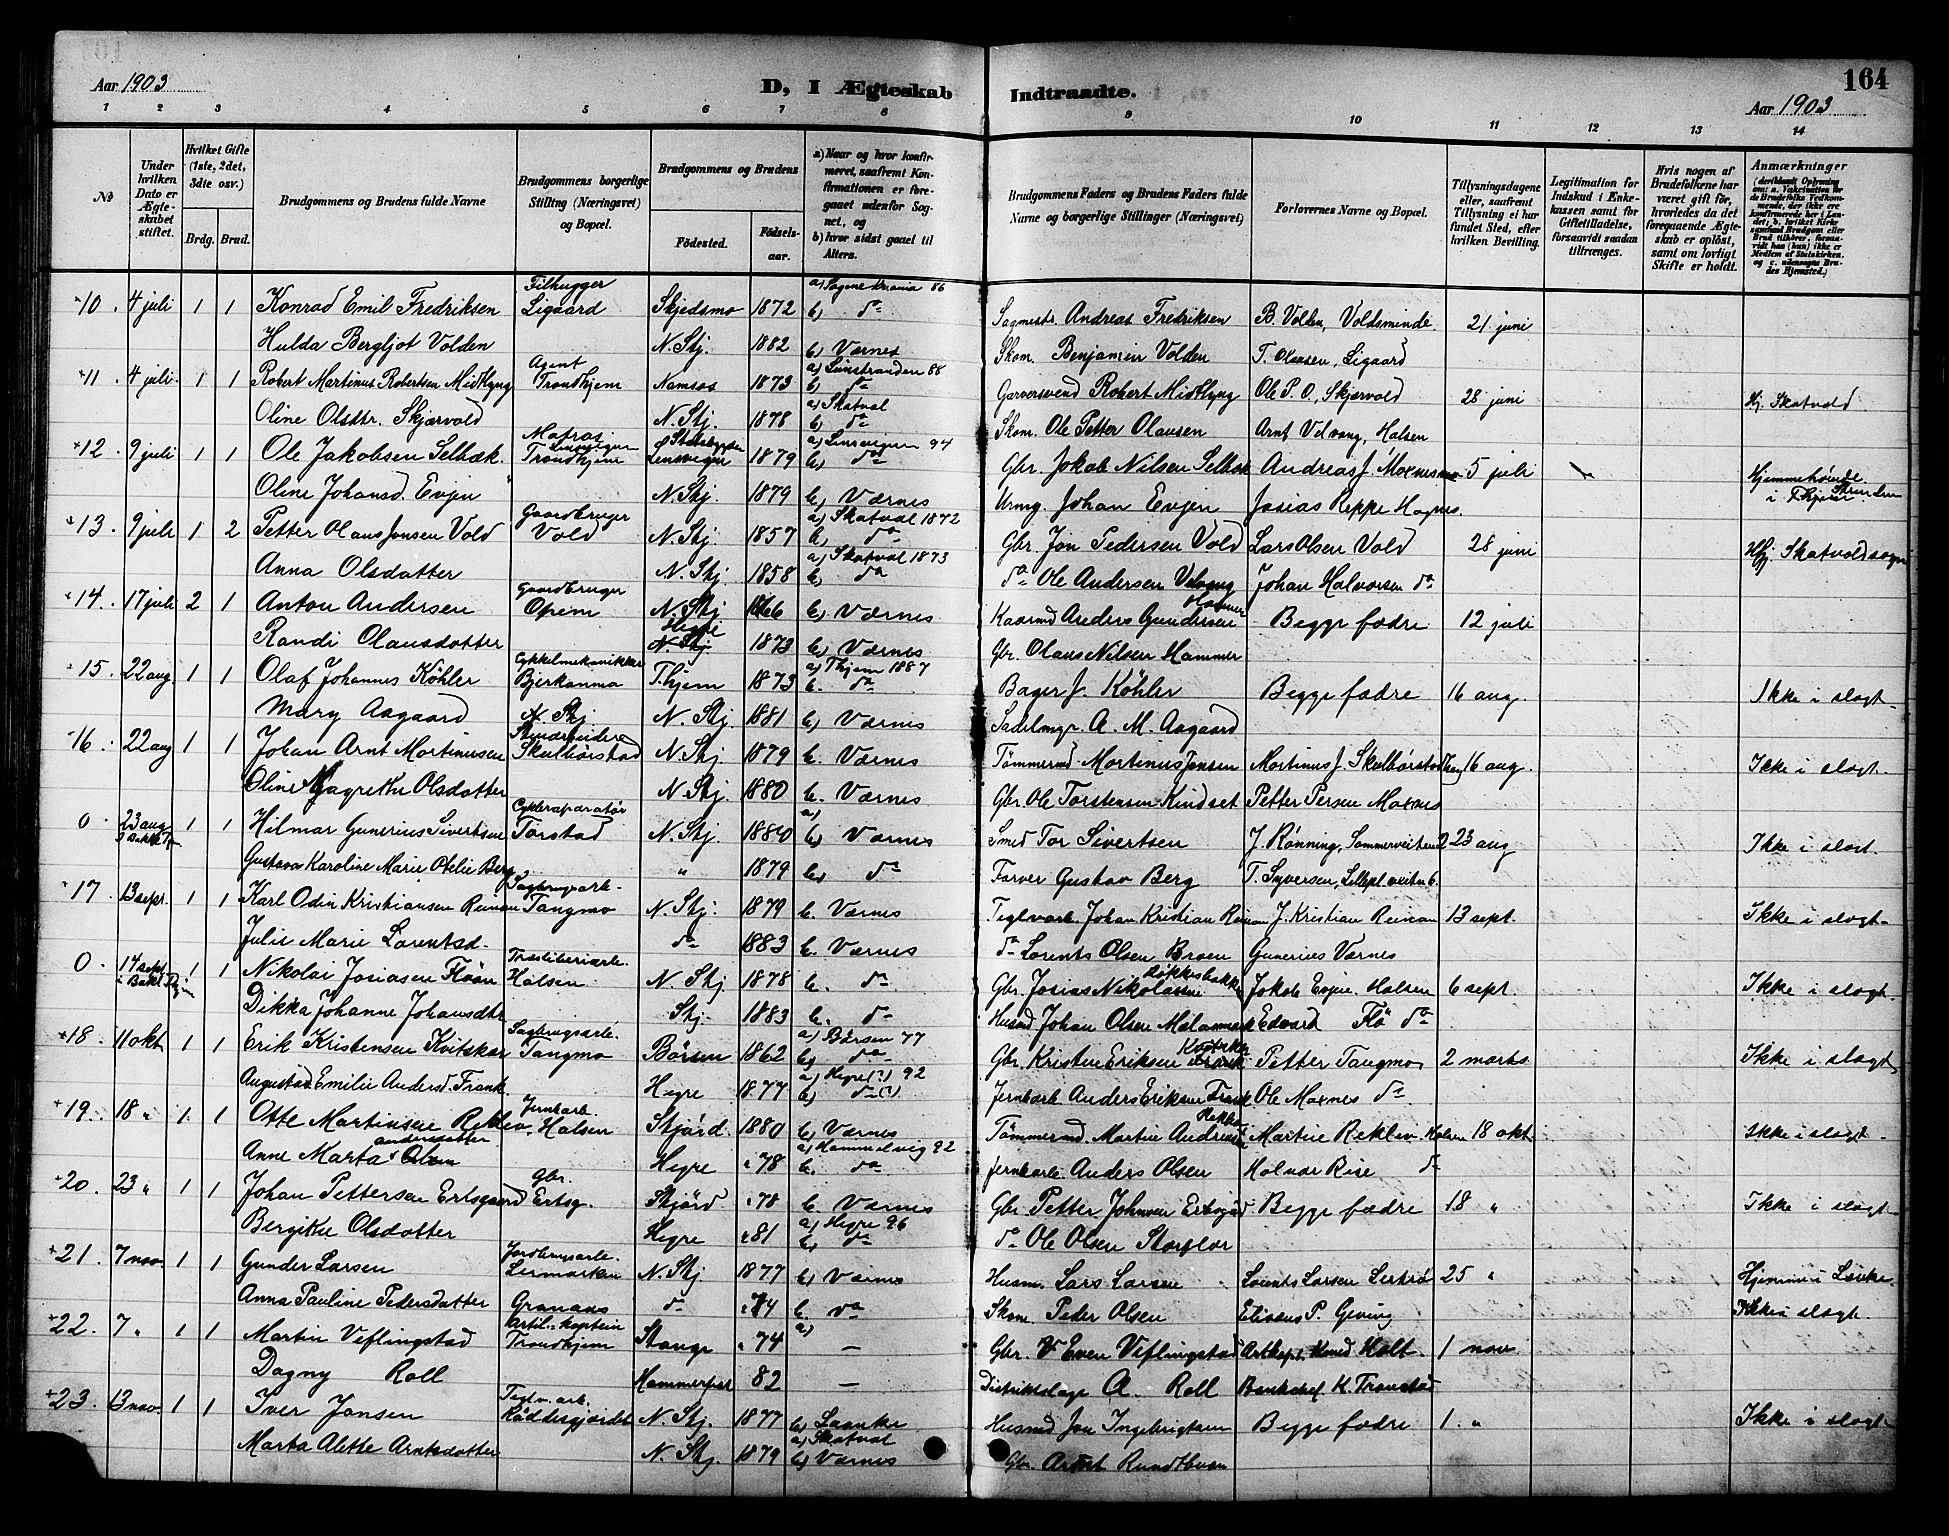 164
Aar 1903
D, I Ægteskab Indtraadte.
Aar 1903
1 2 3 4 5 6 7 8 9 10 11 12 13 14
№
Under hvilken Dato er Ægteskabet stiftet.
Hvilket Gifte (1ste, 2det, 3die osv.)
Brdg. Brud.
Brudgommens og Brudens fulde Navne
Brudgommens borgerlige Stilling (Næringsvei) og Bopæl.
Brudgommens og Brudens
Fødested. Fødselsaar.
a) Naar og hvor konfirmeret, saafremt Konfirmationen er foregaaet udenfor Sognet, og
b) hvor sidst gaaet til Alters.
Brudgommens Faders og Brudens Faders fulde Navne og borgerlige Stillinger (Næringsvei)
Forlovernes Navne og Bopæl.
Tillysningsdagene eller, saafremt Tillysning ei har fundet Sted, efter hvilken Bevilling.
Legitimation for Indskud i Enkekassen samt for Giftetilladelse, forsaavidt saadan tiltrænges.
Hvis nogen af Brudefolkene har været gift før, hvorledes da det foregaaende Ægteskab er opløst, samt om lovligt Skifte er holdt.
Anmærkninger
10. 4 juli 1 1 Konrad Emil Fredriksen Filhugger Ligaard Skjedsmo 1872 a) Sagene Krania 86 b) do Sagmestr. Andreas Fredriksen B. Volden, Voldsminde 21 juni
Hulda Bergljot Volden N. Stj. 1882 b) Værnes Skom. Benjamin Volden T. Olausen, Ligaard
11. 4 juli 1 1 Robert Martinus Robertsen Midtlyng Agent Trondhjem Namsos 1873 a) Linstranden 88 b) do Garversvend Robert Midtlyng Ole P. O., Skjærvold 28 juni Hj. Skatvold
Oline Olsdtr. Skjærvold N. Stj. 1878 a) Skatval b) do Skom. Ole Petter Olausen Arnt Velvang, Halsen
12. 9 juli 1 1 Ole Jakobsen Selbæk Matros Trondhjem Lensvigen 1879 a) Linsvigen 94 b) do Gbr. Jokob Nilsen Selbæk Andreas J. Moxnes 5 juli Hjemmehørende i Thjem Strinden
Oline Johansd. Evjen N. Stj. 1879 b) Værnes Urmg. Johan Evjen Josias Reppe Hognes.
13. 9 juli 1 2 Petter Olaus Jonsen Vold Gaardbruger Vold N. Stj. 1857 a) Skatval 1872 b) do Gbr. Jon Pedersen Vold Lars Olsen Vold 28 juni Hj. Skatvold sogn
Anna Olsdatter N. Stj. 1858 a) Skatval 1873 b) do do Ole Andersen Velvang Johan Halvorsen do
14. 17 juli 2 1 Anton Andersen Gaardbruger Opem N. Stj 1866 b) Værnes Kaarmd Anders Gundersen Begge fædre 12 juli
Randi Olausdotter Hegre N. Stj 1873 b) Værnes Gbr. Olaus Nilsen Hammer
15. 22 aug. 1 1 Olaf Johannes Köhler Cykkelmekanikker Bjerkanmo N. Stj T.hjem 1873 a) Thjem 1887 b. do Bager J. Köhler Begge fædre 16 aug. Ikke i slægt
Mary Aagaard N. Stj. 1881 b) Værnes Sadelmgr. A. M. Aagaard
16. 22 aug 1 1 Johan Arnt Martinussen Skulbørstad N. Stj 1879 b. Værnes Tømmermd Martinus Jonsen Martinus J. Skulbørstad 16 aug. Ikke i slægt.
Oline Margrethe Olsdatter N. Stj 1880 b. Værnes Gbr. Ole Torstensen Kindset Petter Persen Moxnes
0 23 aug 1 1 Hilmar Gunerius Sivertsen Cykkereparatør Torstad N. Stj. 1880 a) b) Værnes Smed Tor Sivertsen J. Rønning, Sommerveiten 2 23 aug Ikke i slægt.
Gustava Karoline Marie Otelie Berg " 1879 b) do Farver Gustav Berg T. Syversen, Lillepl. veiten 6.
17. 13 sept. 1 1 Karl Odin Kristiansen Reinan Sagbrugsarb. Tangmo N. Stj. 1879 b. Værnes Teglvarb. Johan Kristian Reinan J. Kristian Reinan 13 sept. Ikke i slægt
Julie Marie Lorentsd. do 1883 b. Værnes do Lorents Olsen Broen Gunerius Værnes
0. 17 sept i Bakl. Thjem 1 1 Nikolai Josiasen Fløan Træsliberiarb. Halsen N. Stj 1878 b. do Gbr. Josias Nikolaisen Løkkesbakk Jokob Evjen Halsen 6 sept. Ikke i slægt
Dikka Johanne Johansdtr Stj. 1883 b. do Husmd Johan Olsen Edvard Flø do
18. 11 okt 1 1 Erik Kristensen Kvitskar Sagbrugsarb. Tangmo Børsen 1862 a) Børsen 77 b) do Gbr. Kristen Eriksen Petter Tangmo 2 marts Ikke i slægt
Augusta Emilie Andersd. Frank Hegre 1877 a) Hegre(?) 92 b) do(?) Jernbarb. Anders Eriksen Frank Ole Moxnes do
19. 18 " 1 1 Otte Martinsen Reklev Jernbarb. Halsen Stjørd. 1880 b) Værnes Tømmermd. Martin Andreas Reklev Martin Reklev Halsen 18 okt. Ikke i slægt
Anne Marta andersdatter Olsen Hegre " 78 a) Hommelvig 92 b. do Jernbarb. Anders Olsen Halvor Rise do
20. 23 " 1 1 Johan Pettersen Ertsgaard Gbr. Ertsg. Stjørd " 78 b. Værnes Gbr Petter Johnsen Ertsgård Begge fædre 18 " Ikke i slægt
Bergitte Olsdotter Hegre " 81 a) Hegre 96 b) do do Ole Olsen Storflor
21. 7 nov. 1 1 Gunder Larsen Jordbrugsarb. Lermarken N. Stj. 1877 b) Værnes Husm. Lars Larsen Lorents Larsen Lertrø 25 " Hjemme i Lænke
Anna Pauline Pedersdatter Granaas do " 84 b. do Skom. Peder Olsen P. Geving Ikke i slægt.
22. 7 " 1 1 Martin Veflingstad Artil. kaptein Trondhjem Stange " 74 a) — Gbr. Even Veflingstad Artkapt. Holt. 1 nov
Dagny Roll Hammerfest 82 — Distriktslæge A. Roll Bankchef K. Tronstad
23. 13 nov. 1 1 Iver Jonsen Teglv. arb. N. Stj. 1877 b) Laanke Husmd Jon Ingebrigtsen Begge fædre 1. " Ikke i slægt
Marta Alette Arntsdotter N. Stj. 1879 a) Skatval b) Værnes Gbr. Arnt Rundthaan